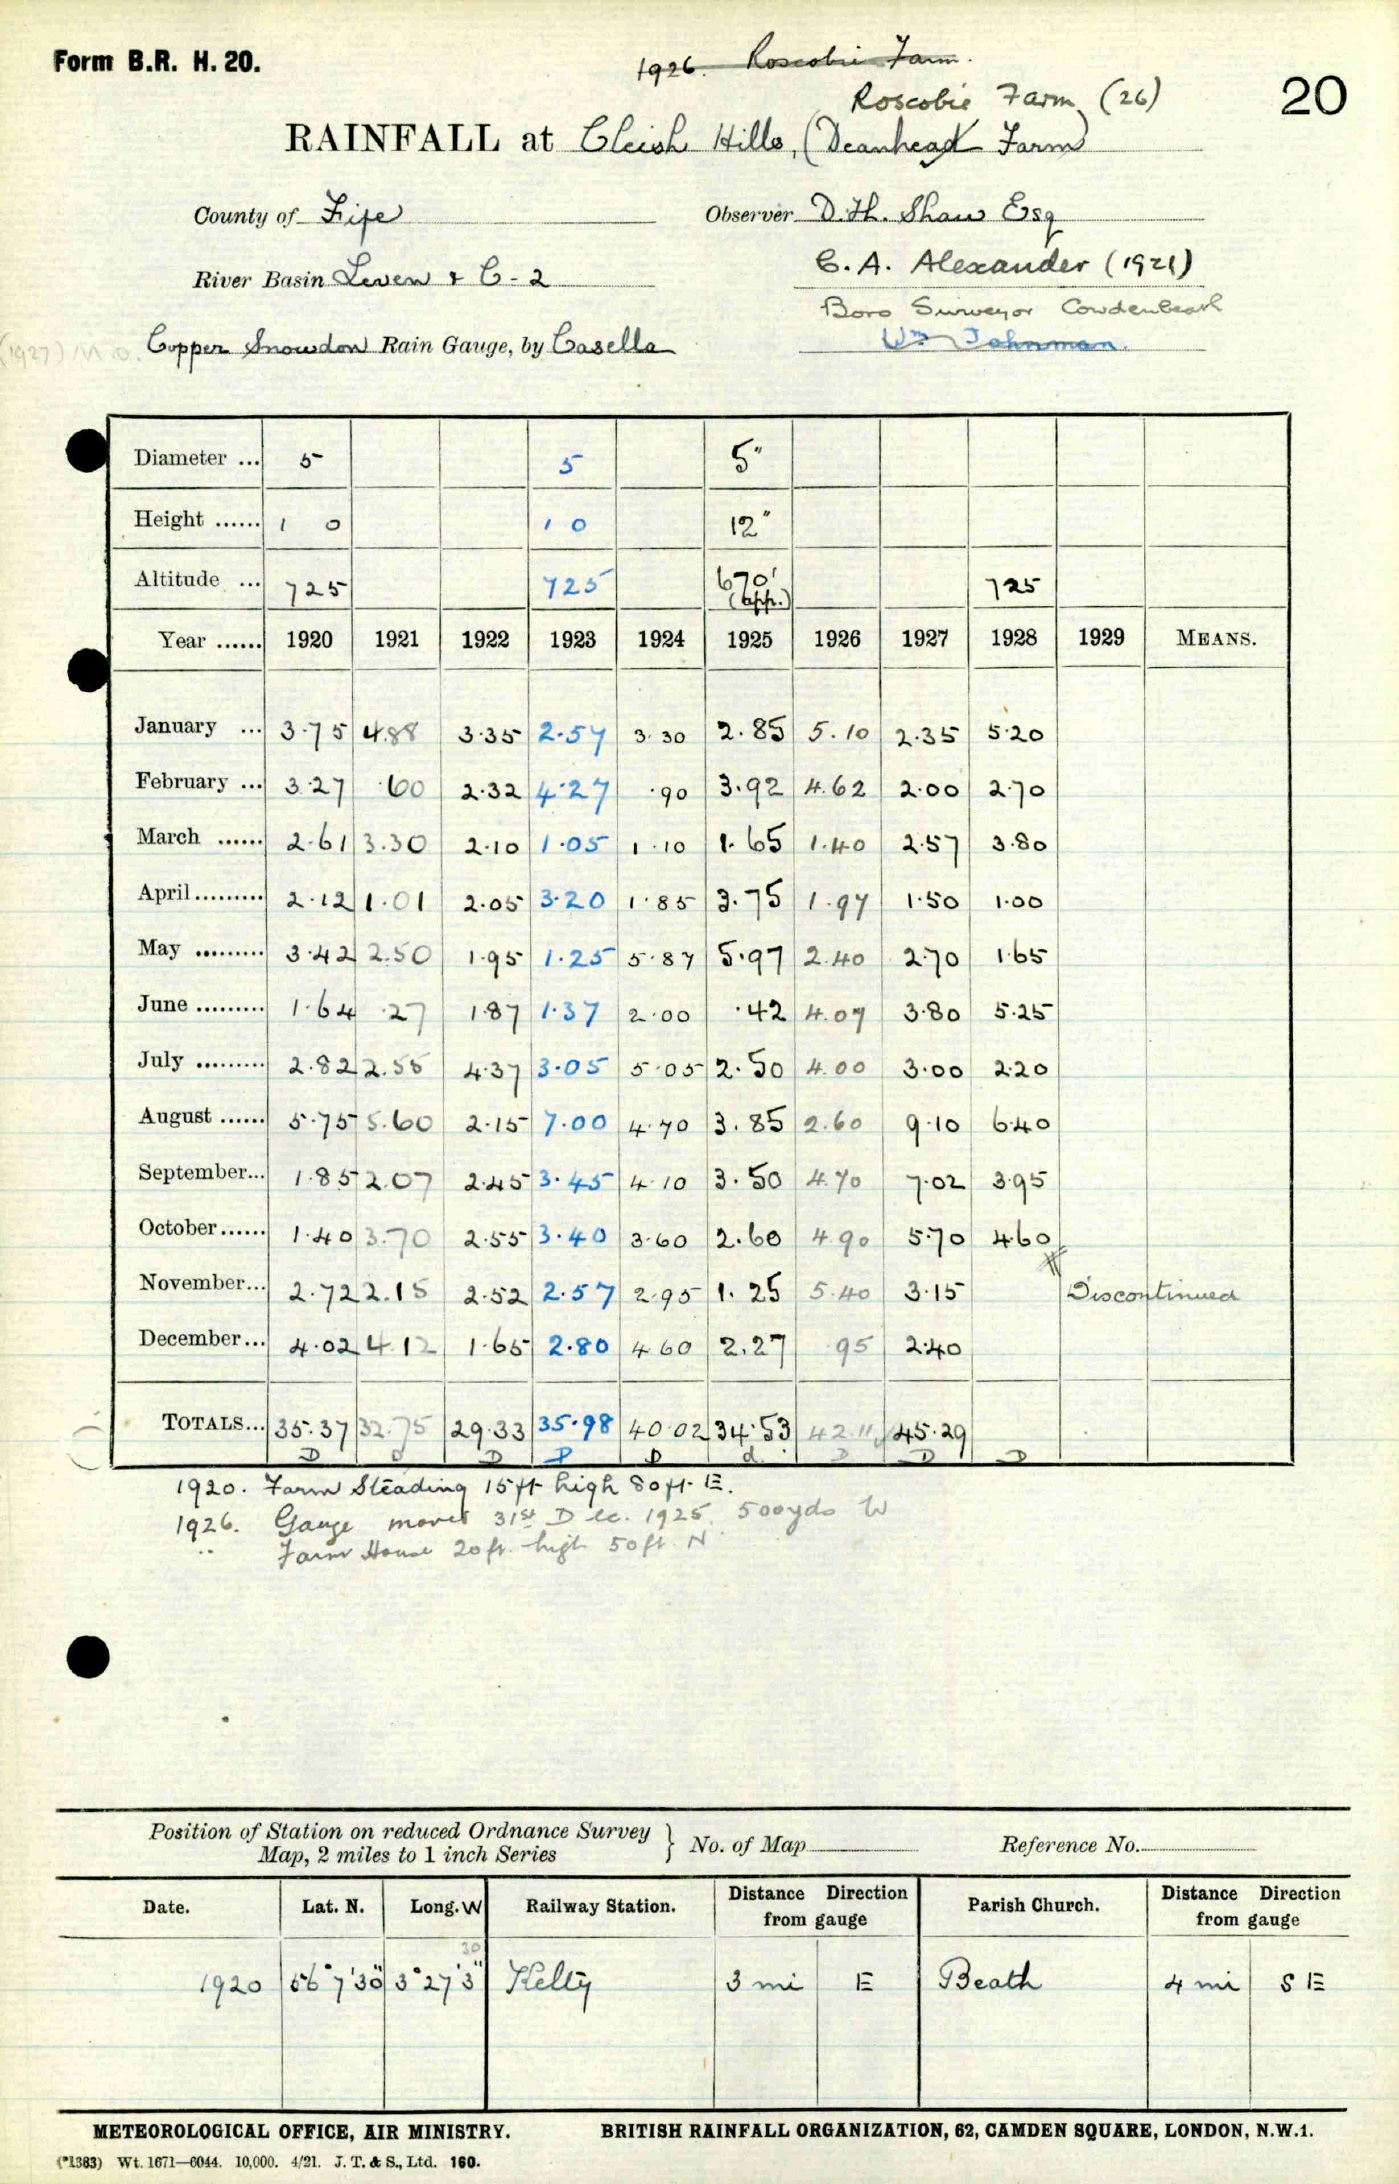 Form B.R. H. 20.
1926. Roscobie Farm.
Roscobie Farm (26)
20
RAINFALL at Cleish Hills, (Deanhead Farm)
County of Fife
Observer D. H. Shaw Esq
River Basin Leven & C - 2
C. A. Alexander (1921)
Boro Surveyor Cowdenbeath
(1927) M.O. Copper Snowdon Rain Gauge, by Casella
Wm Johnman.
Diameter ... 5 5 5"
Height ...... 1 0 1 0 12"
Altitude ... 725 725 670' (app.) 725
Year ...... 1920 1921 1922 1923 1924 1925 1926 1927 1928 1929 MEANS.
January ... 3.75 4.88 3.35 2.57 3.30 2.85 5.10 2.35 5.20
February ... 3.27 .60 2.32 4.27 .90 3.92 4.62 2.00 2.70
March ...... 2.61 3.30 2.10 1.05 1.10 1.65 1.40 2.57 3.80
April......... 2.12 1.01 2.05 3.20 1.85 3.75 1.97 1.50 1.00
May ......... 3.42 2.50 1.95 1.25 5.87 5.97 2.40 2.70 1.65
June ......... 1.64 .27 1.87 1.37 2.00 .42 4.07 3.80 5.25
July ......... 2.82 2.55 4.37 3.05 5.05 2.50 4.00 3.00 2.20
August ...... 5.75 5.60 2.15 7.00 4.70 3.85 2.60 9.10 6.40
September... 1.85 2.07 2.45 3.45 4.10 3.50 4.70 7.02 3.95
October...... 1.40 3.70 2.55 3.40 3.60 2.60 4.90 5.70 4.60
November... 2.72 2.15 2.52 2.57 2.95 1.25 5.40 3.15 Discontinued
December... 4.02 4.12 1.65 2.80 4.60 2.27 .95 2.40
TOTALS... 35.37 32.75 29.33 35.98 40.02 34.53 42.11 45.29
D d D D D d D D D
1920. Farm Steading 15ft high 80ft. E.
1926. Gauge moved 31st Dec. 1925. 500yds W
" Farm House 20ft. high 50ft. N
Position of Station on reduced Ordnance Survey
Map, 2 miles to 1 inch Series } No. of Map Reference No.
Date. Lat. N. Long. W Railway Station. Distance Direction from gauge Parish Church. Distance Direction from gauge
30
1920 56°7'30" 3°27'3" Kelty 3 mi E Beath 4 mi S E
METEOROLOGICAL OFFICE, AIR MINISTRY. BRITISH RAINFALL ORGANIZATION, 62, CAMDEN SQUARE, LONDON, N.W.1.
(*1383) Wt. 1671—6044. 10,000. 4/21. J. T. & S., Ltd. 160.